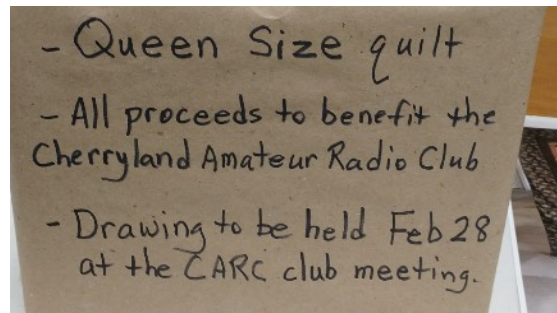 - Queen Size quilt
- All proceeds to benefit the
Cherryland Amateur Radio Club
- Drawing to be held Feb 28
at the CARC club meeting.